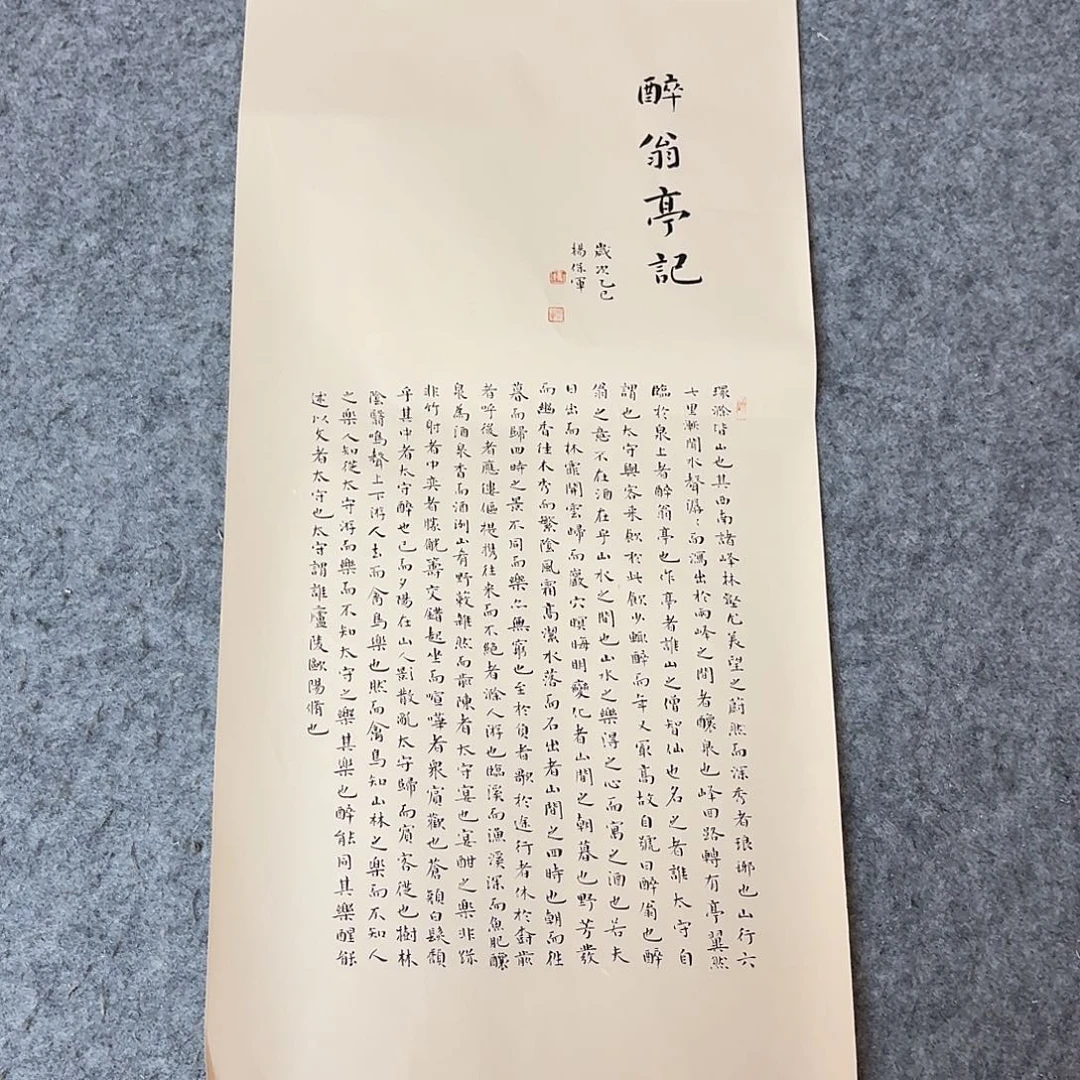 醉翁亭記
歲次乙巳
楊保軍
環滁皆山也其西南諸峰林壑尤美望之蔚然而深秀者琅琊也山行六
七里漸聞水聲潺:而瀉出於兩峰之間者釀泉也峰回路轉有亭翼然
臨於泉上者醉翁亭也作亭者誰山之僧智仙也名之者誰太守自
謂也太守與客來飲於此飲少輒醉而年又最高故自號曰醉翁也醉
翁之意不在酒在乎山水之間也山水之樂得之心而寓之酒也若夫
日出而林霏開雲歸而巖穴暝晦明變化者山間之朝暮也野芳發
而幽香佳木秀而繁陰風霜高潔水落而石出者山間之四時也朝而往
暮而歸四時之景不同而樂亦無窮也至於負者歌於途行者休於樹前
者呼後者應傴僂提攜往來而不絕者滁人游也臨溪而漁溪深而魚肥釀
泉為酒泉香而酒洌山肴野蔌雜然而前陳者太守宴也宴酣之樂非絲
非竹射者中奕者勝觥籌交錯起坐而喧嘩者衆賓歡也蒼顏白髮頹
乎其中者太守醉也已而夕陽在山人影散亂太守歸而賓客從也樹林
陰翳鳴聲上下游人去而禽鳥樂也然而禽鳥知山林之樂而不知人
之樂人知從太守游而樂而不知太守之樂其樂也醉能同其樂醒能
述以文者太守也太守謂誰廬陵歐陽脩也